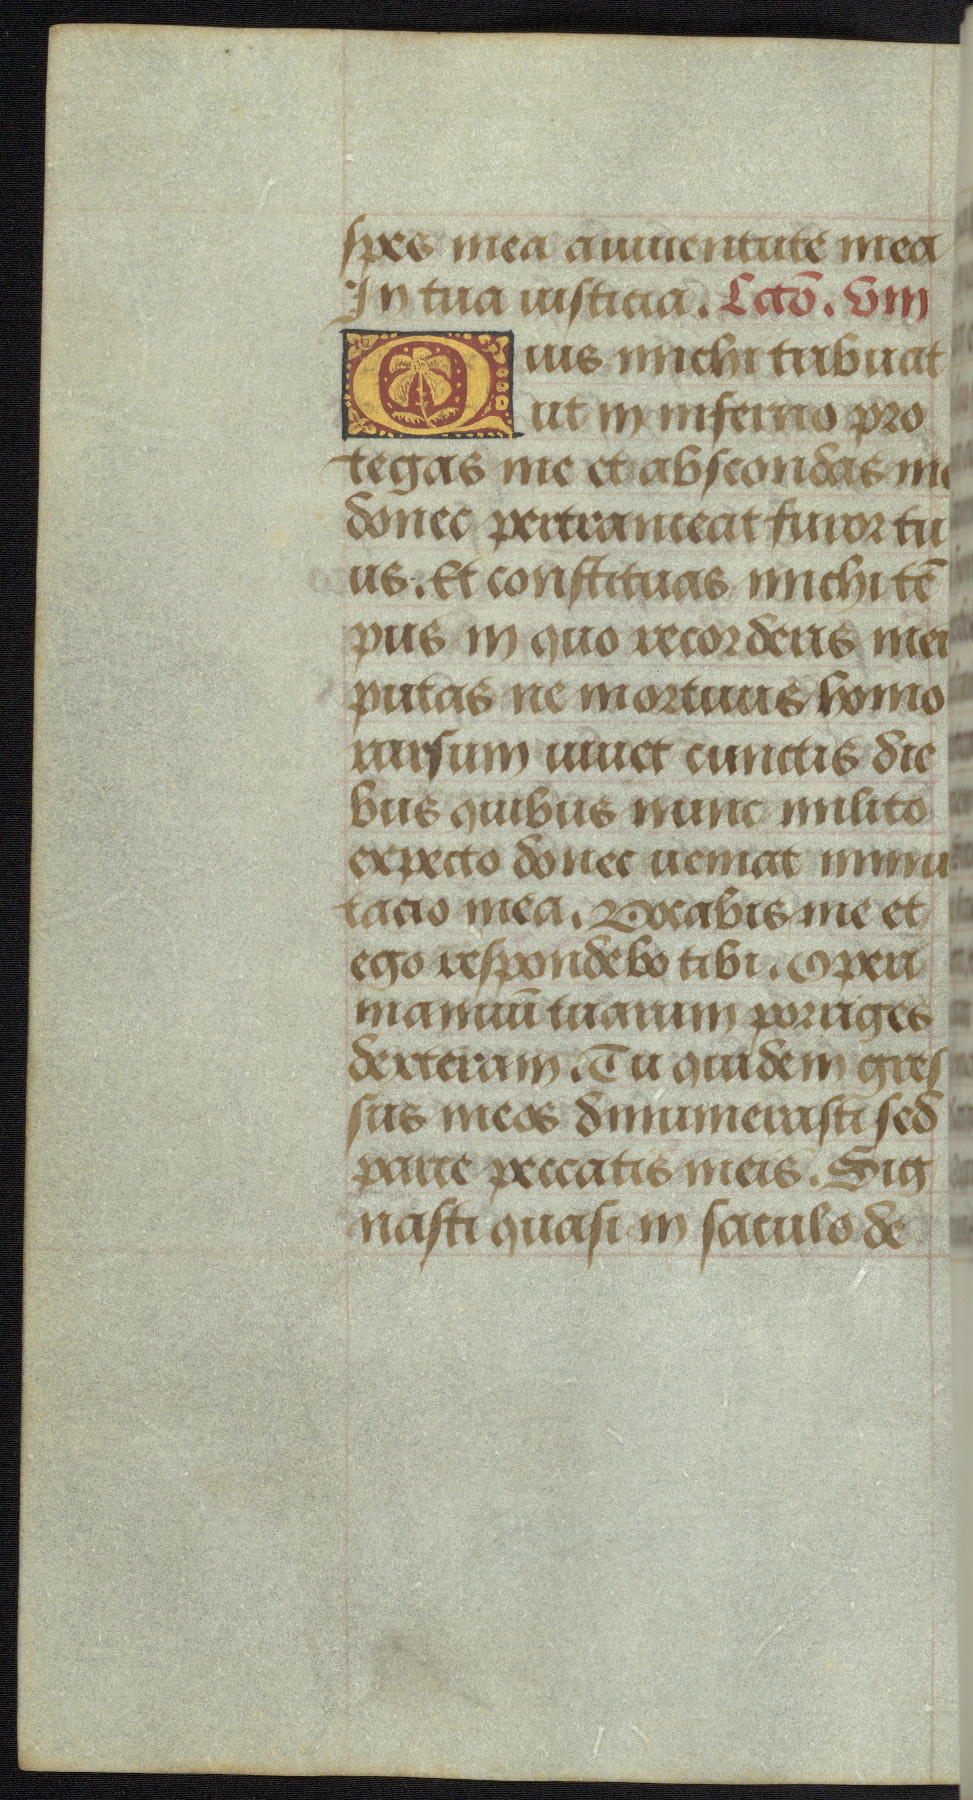 spes mea a iuuentute mea
In tua iusticia. Lctō. viii
Quis michi tribuat
ut in inferno pro
tegas me et abscondas me
donec pertranceat furor tu
us. Et constituas michi tē
pus in quo recorderis mei
putas ne mortuus homo
rursum uiuet cunctis die
bus quibus nunc milito
expecto donec ueniat inmu
tacio mea. Vocabis me et
ego respondebo tibi. Operi
manuū tuarum porriges
dexteram. Tu quidem gres
sus meos dinumerasti sed
parce peccatis meis. Sig
nasti quasi in saculo de